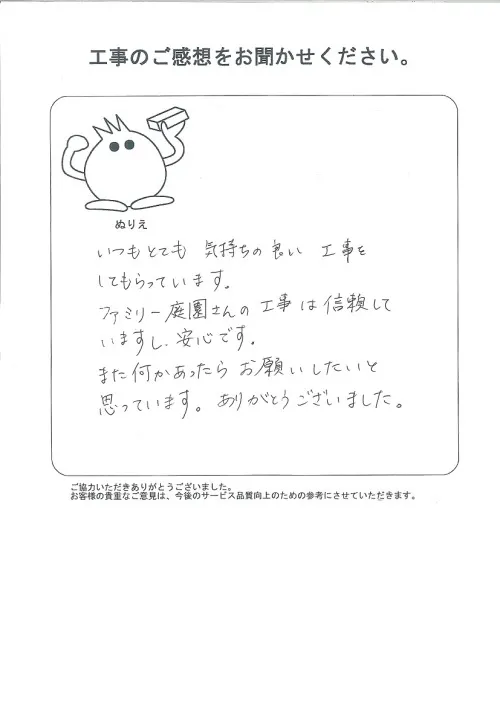 工事のご感想をお聞かせください。
ぬりえ
いつもとても 気持ちの良い 工事を
してもらっています。
ファミリー庭園さんの工事は信頼して
いますし、安心です。
また何かあったらお願いしたいと
思っています。ありがとうございました。
ご協力いただきありがとうございました。
お客様の貴重なご意見は、今後のサービス品質向上のための参考にさせていただきます。